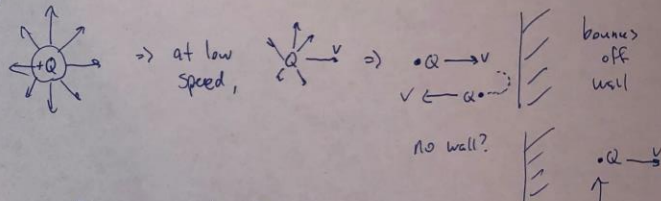 +Q
=> at low speed,
Q → v
=> •Q → v
v ← Q•
bounces off wall
no wall?
•Q → v